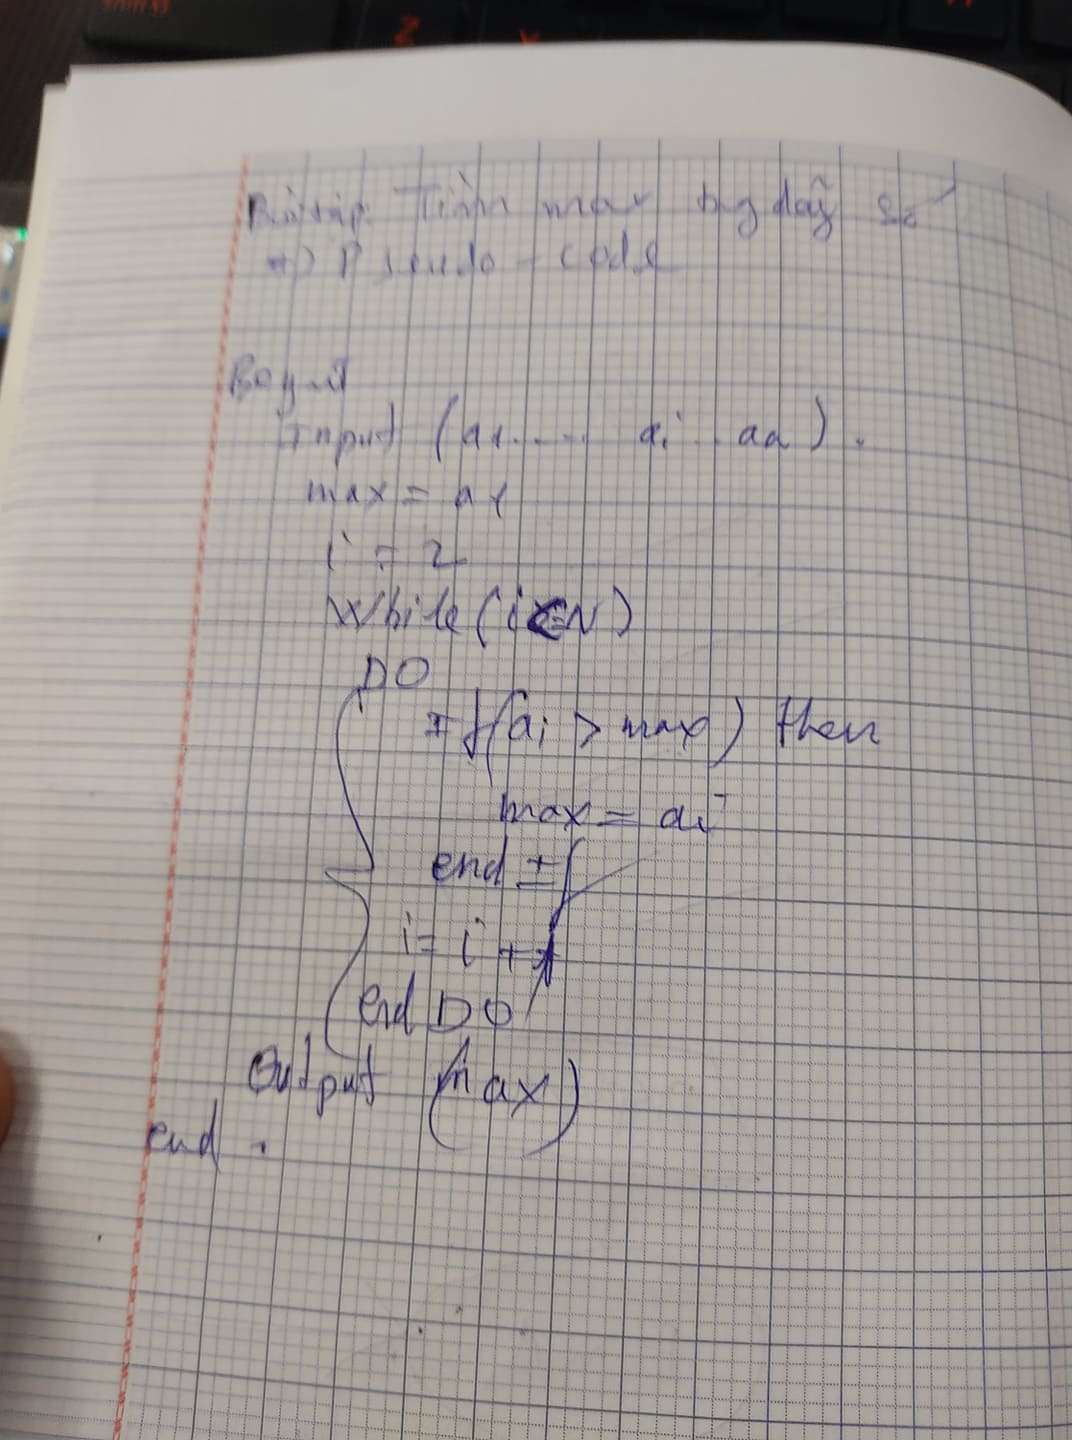 Bài tập: Tìm max trg dãy số
=> Pseudo - code
Begin
Input (a1.... ai .. an).
max = a1
i = 2
While (i<=N)
DO
If (ai > max) then
max = ai
end If
i = i + 1
end DO
Output (max)
end.